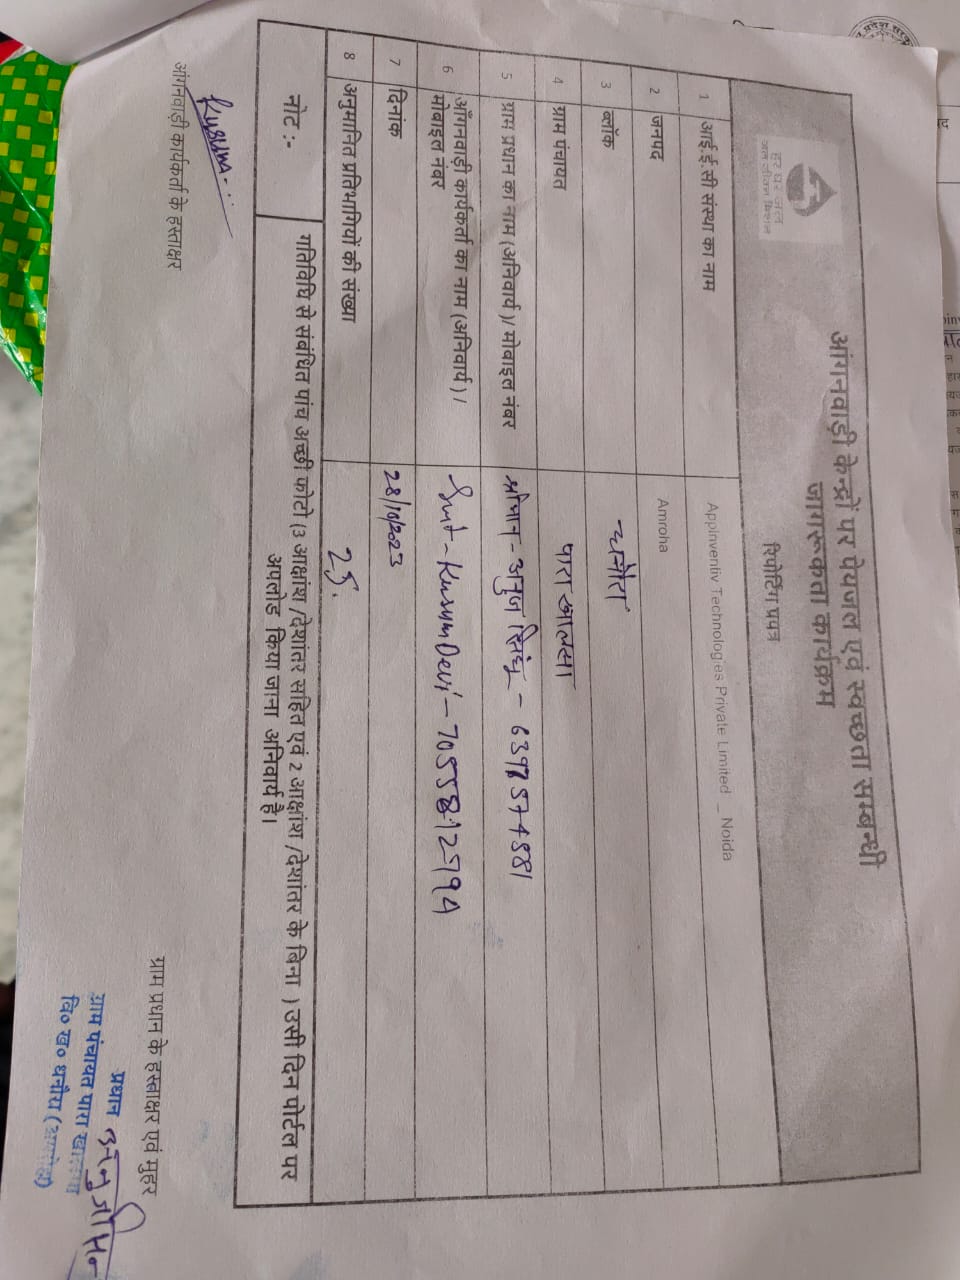 हर घर जल
जल जीवन मिशन
आंगनवाड़ी केन्द्रों पर पेयजल एवं स्वच्छता सम्बन्धी
जागरूकता कार्यक्रम
रिपोर्टिंग प्रपत्र
1 आई.ई.सी संस्था का नाम Appinventiv Technologies Private Limited – Noida
2 जनपद Amroha
3 ब्लॉक धनौरा
4 ग्राम पंचायत पारा खालसा
5 ग्राम प्रधान का नाम (अनिवार्य)/ मोबाइल नंबर श्रीमान - अनुज सिंह -
6 आँगनवाड़ी कार्यकर्ता का नाम (अनिवार्य) / मोबाइल नंबर Smt - Kusum Devi -
7 दिनांक 28/10/2023
8 अनुमानित प्रतिभागियों की संख्या 25.
नोट :- गतिविधि से संबंधित पांच अच्छी फोटो (3 आक्षांश /देशांतर सहित एवं 2 आक्षांश /देशांतर के बिना ) उसी दिन पोर्टल पर
अपलोड किया जाना अनिवार्य है।
Kusum
आंगनवाड़ी कार्यकर्ता के हस्ताक्षर
ग्राम प्रधान के हस्ताक्षर एवं मुहर
प्रधान
ग्राम पंचायत पारा खालसा
वि० ख० धनौरा (अमरोहा)